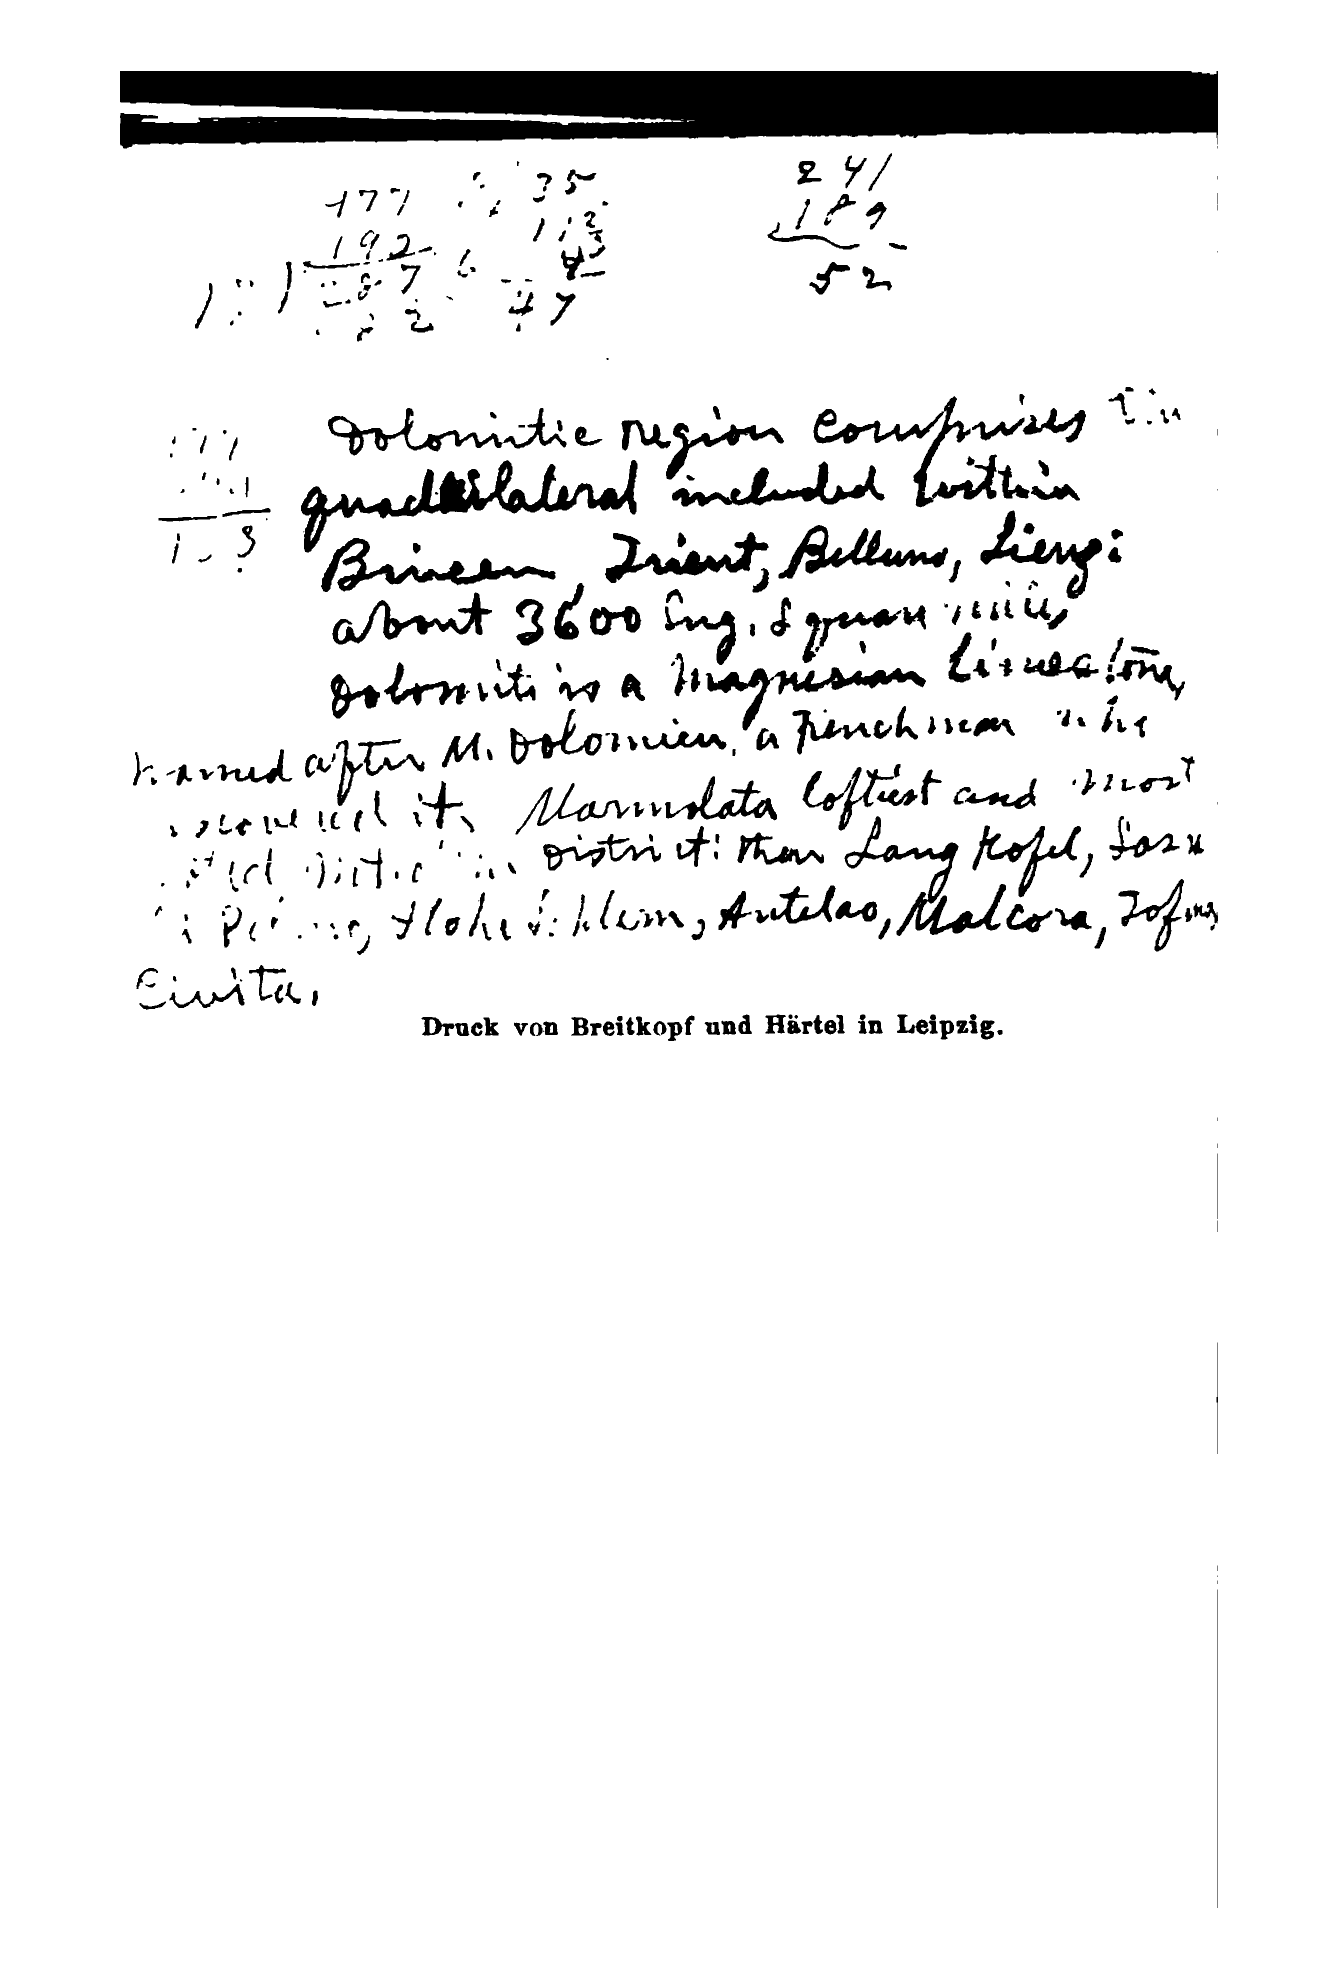 177 35
192
876
47
241
189
52
Dolomitic region comprises the
quadrilateral included within
Brixen, Trient, Belluno, Lienz:
about 3600 Eng. square miles
Dolomite is a Magnesian Limestone,
named after M. Dolomieu, a Frenchman who
discovered it. Marmolata loftiest and most
in District: then Lang Kofel, Sass
Hohe Schlern, Antelao, Malcora, Tofana,
Civita.
Druck von Breitkopf und Härtel in Leipzig.